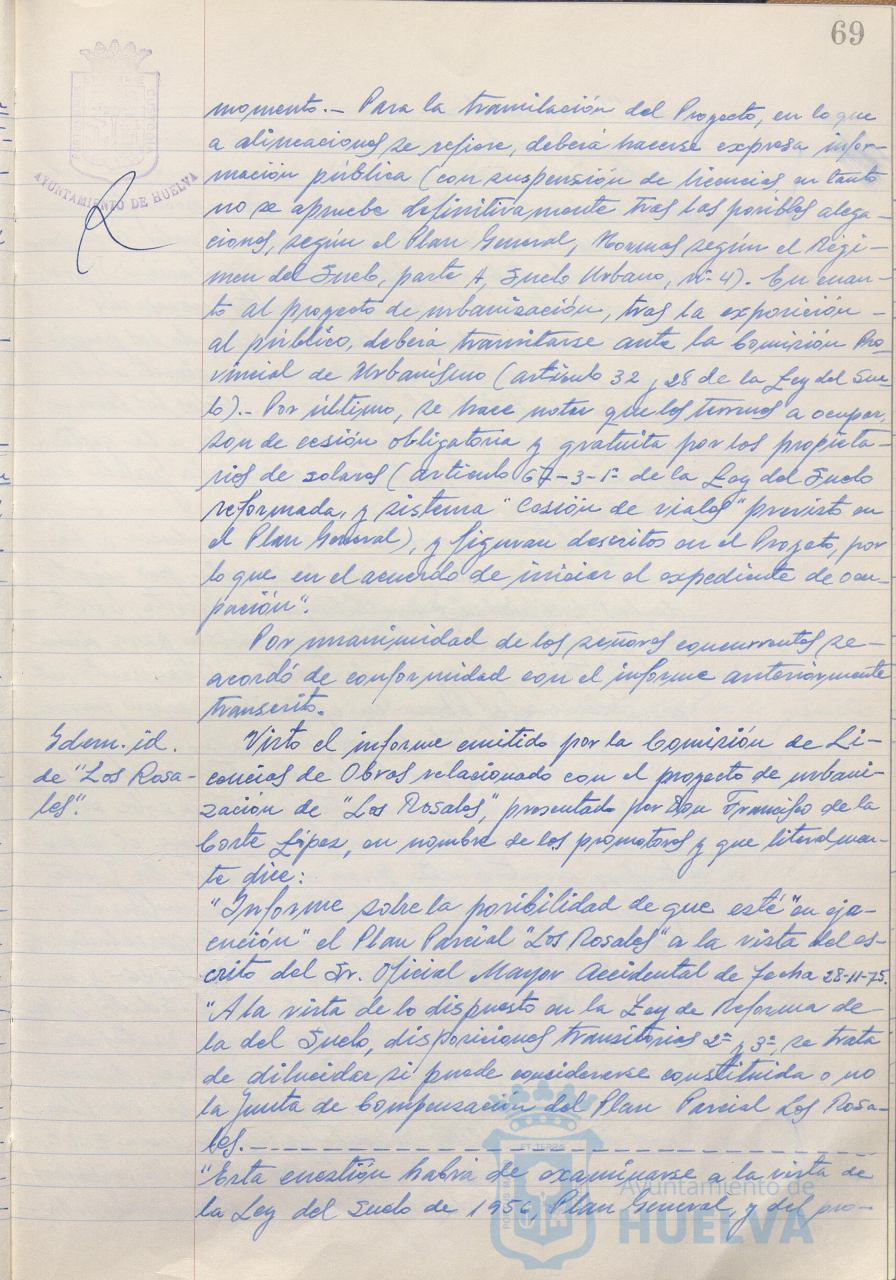 69
AYUNTAMIENTO DE HUELVA
momento.- Para la tramitación del Proyecto, en lo que
a alineaciones se refiere, deberá hacerse expresa infor-
mación pública (con suspensión de licencias, en tanto
no se apruebe definitivamente tras las posibles alega-
ciones, según el Plan General, Normas según el Régi-
men del Suelo, parte A, Suelo Urbano, nº-4). En cuan-
to al proyecto de urbanización, tras la exposición -
al público, deberá tramitarse ante la Comisión Pro-
vincial de Urbanismo (artículo 32 y 28 de la Ley del Sue-
lo).- Por último, se hace notar que los terrenos a ocupar,
son de cesión obligatoria y gratuita por los propieta-
rios de solares (artículo 67-3-1º de la Ley del Suelo
reformada, y sistema "Cesión de viales" previsto en
el Plan General), y figuran descritos en el Proyecto, por
lo que en el acuerdo de iniciar el expediente de ocu-
pación".
Por unanimidad de los señores concurrentes se-
acordó de conformidad con el informe anteriormente
transcrito.
Idem. id.
de "Los Rosa-
les".
Visto el informe emitido por la Comisión de Li-
cencias de Obras relacionado con el proyecto de urbani-
zación de "Los Rosales", presentado por Don Francisco de la
Corte López, en nombre de los promotores y que literalmen-
te dice:
"Informe sobre la posibilidad de que esté "en eje-
cución" el Plan Parcial "Los Rosales" a la vista del es-
crito del Sr. Oficial Mayor Accidental de fecha 28-11-75.
"A la vista de lo dispuesto en la Ley de Reforma de
la del Suelo, disposiciones transitorias 2ª y 3ª, se trata
de dilucidar si puede considerarse constituida o no
la Junta de Compensación del Plan Parcial Los Rosa-
les.-
"Esta cuestión habrá de examinarse a la vista de
la Ley del Suelo de 1956 Plan General, y del pro-
Ayuntamiento de
HUELVA